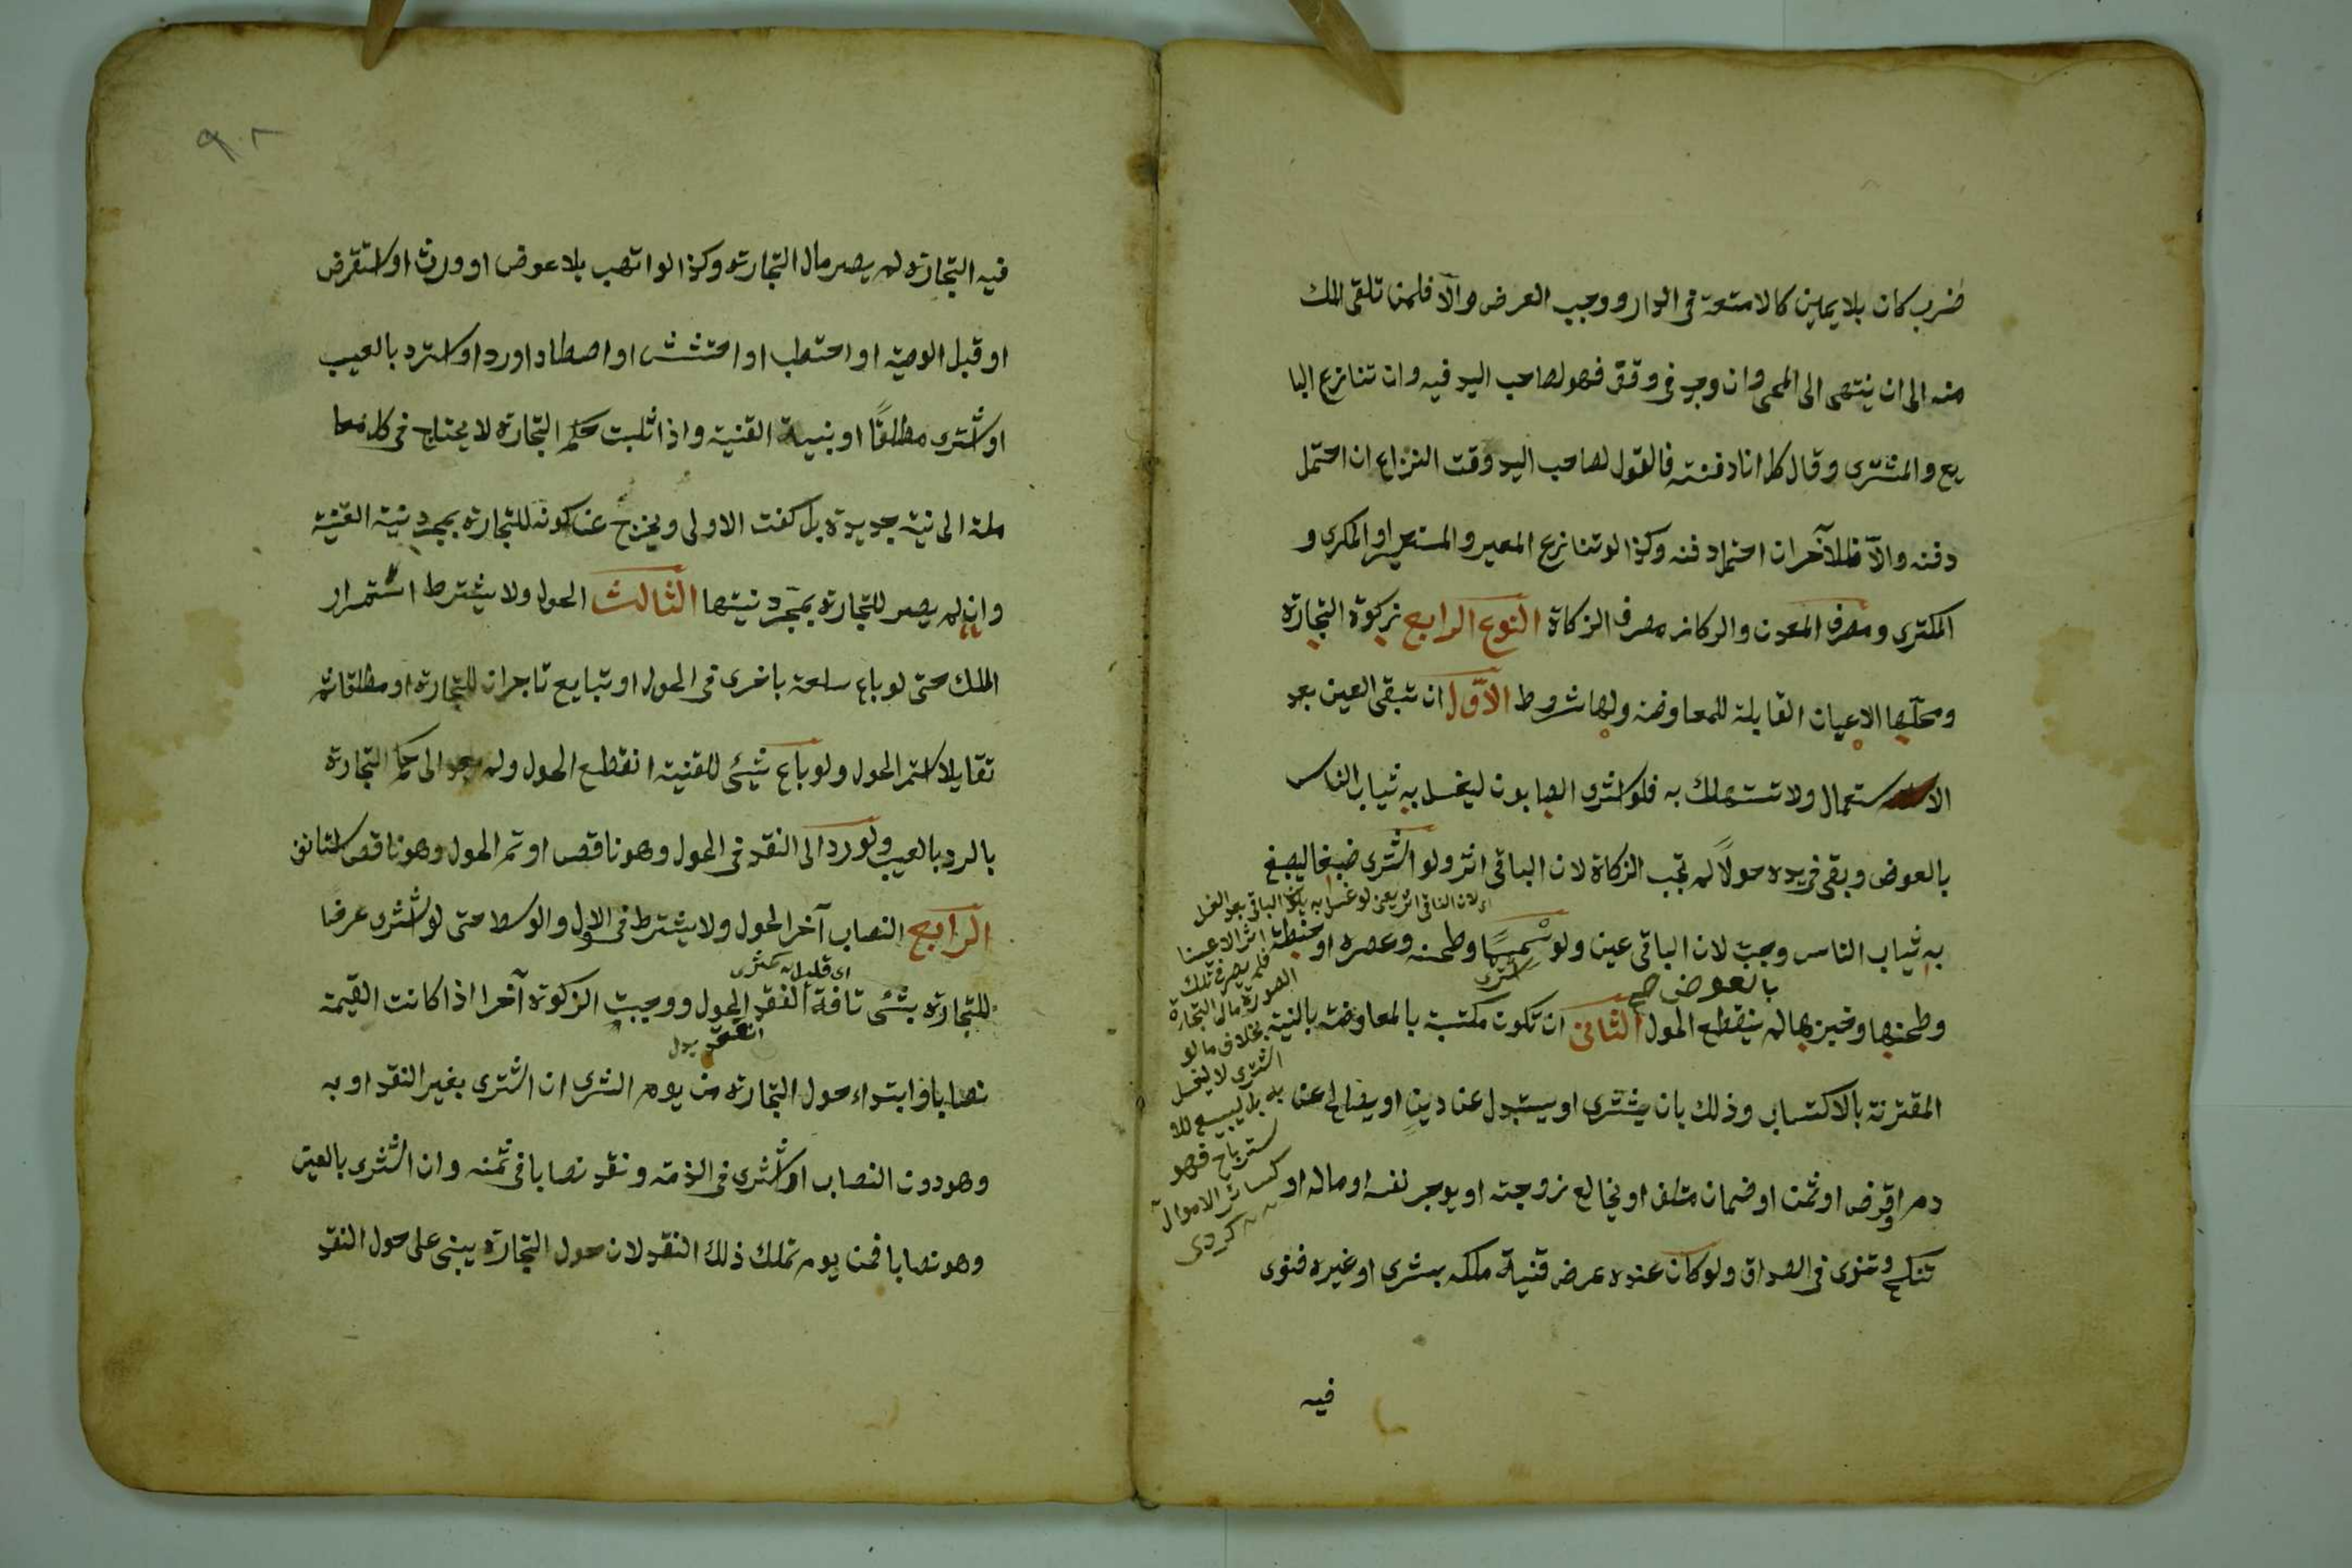 ضرب كان بلا يمين كالامتعة فى الدار ووجب العرض والآ فلمن تلقى الملك
منه الى ان ينتهى الى المحى وان وجد فى وقف فهو لصاحب اليد فيه وان تنازع البا
يع والمشترى وقال كل انا دفنته فالقول لصاحب اليد وقت النزاع ان احتمل
دفنه والآ فللآخر ان احتمل دفنه وكذا لو تنازع المعير والمستعير او المكرى و
المكترى ومصرف المعدن والركاز مصرف الزكاة النوع الرابع زكوة التجارة
ومحلّها الاعيان القابلة للمعاوضه ولها شروط الاوّل ان تبقى العين بعد
الاستعمال ولا تستهلك به فلو اشترى الصابون ليغسل به ثياب الناس
بالعوض وبقى فى يده حولاً لم تجب الزكاة لان الباقى اثر ولو اشترى صبغا ليصبغ
به ثياب الناس وجبت لان الباقى عين ولو سمسمًا وطحنه وعصره او حنطة
اشترى
بالعوض صح
وطحنها وخبزها لم ينقطع الحول الثانى ان تكون مكتسبة بالمعاوضة بالنية
المقترنة بالاكتساب وذلك بان يشترى او يستبدل عن دين او يصالح عن
دم او قرض او ثمن او ضمان متلف او يخالع زوجته او يوجر نفسه او ماله او
تنكح وتنوى فى الصداق ولو كان عنده عرض قنية ملكه بشرى او غيره فنوى
فيه
اى لان الباقى اثر يعنى لو غسل به يكون الباقى بعد الغسل
اثر الا عينا
فلم يصر فى تلك
الصورة مال التجارة
بخلاف ما لو
اشترى لا ليغسل
به بل ليبيع للا
سترباح فهو
كسائر الاموال
كردى
٩٠٢
فيه التجارة لم يصر مال التجارة وكذا لو اتهب بلا عوض او ورث او استقرض
او قبل الوصية او احتطب او احتشش او اصطاد او رد او استرد بالعيب
او اشترى مطلقًا او بنية القنية واذا ثبت حكم التجارة لا يحتاج فى كل معا
ملة الى نية جديدة بل كفت الاولى ويخرج عن كونه للتجارة بمجرد نية القنية
وان لم يصر للتجارة بمجرّد نيتها الثالث الحول ولا يشترط استمرار
الملك حتى لو باع سلعة باخرى فى الحول او تبايع تاجران للتجارة او مطلقا ثم
تقايلا استمر الحول ولو باع شيئ للقنية انقطع الحول ولم يعد الى حكم التجارة
بالرد بالعيب ولو رد الى النقد فى الحول وهو ناقص او تم الحول وهو ناقص استانف
الرابع النصاب آخر الحول ولا يشترط فى الاول والوسط حتى لو اشترى عرضا
اى قليل
للتجارة بشئ تافة انعقد الحول ووجبت الزكوة آخرا اذا كانت القيمة
انعقد بدل
نصابا وابتداء حول التجارة من يوم الشرى ان اشترى بغير النقد او به
وهو دون النصاب او اشترى فى الذمة ونقد نصابا فى ثمنه وان اشترى بالعين
وهو نصابا فمن يوم تملك ذلك النقد لان حول التجارة يبنى على حول النقد